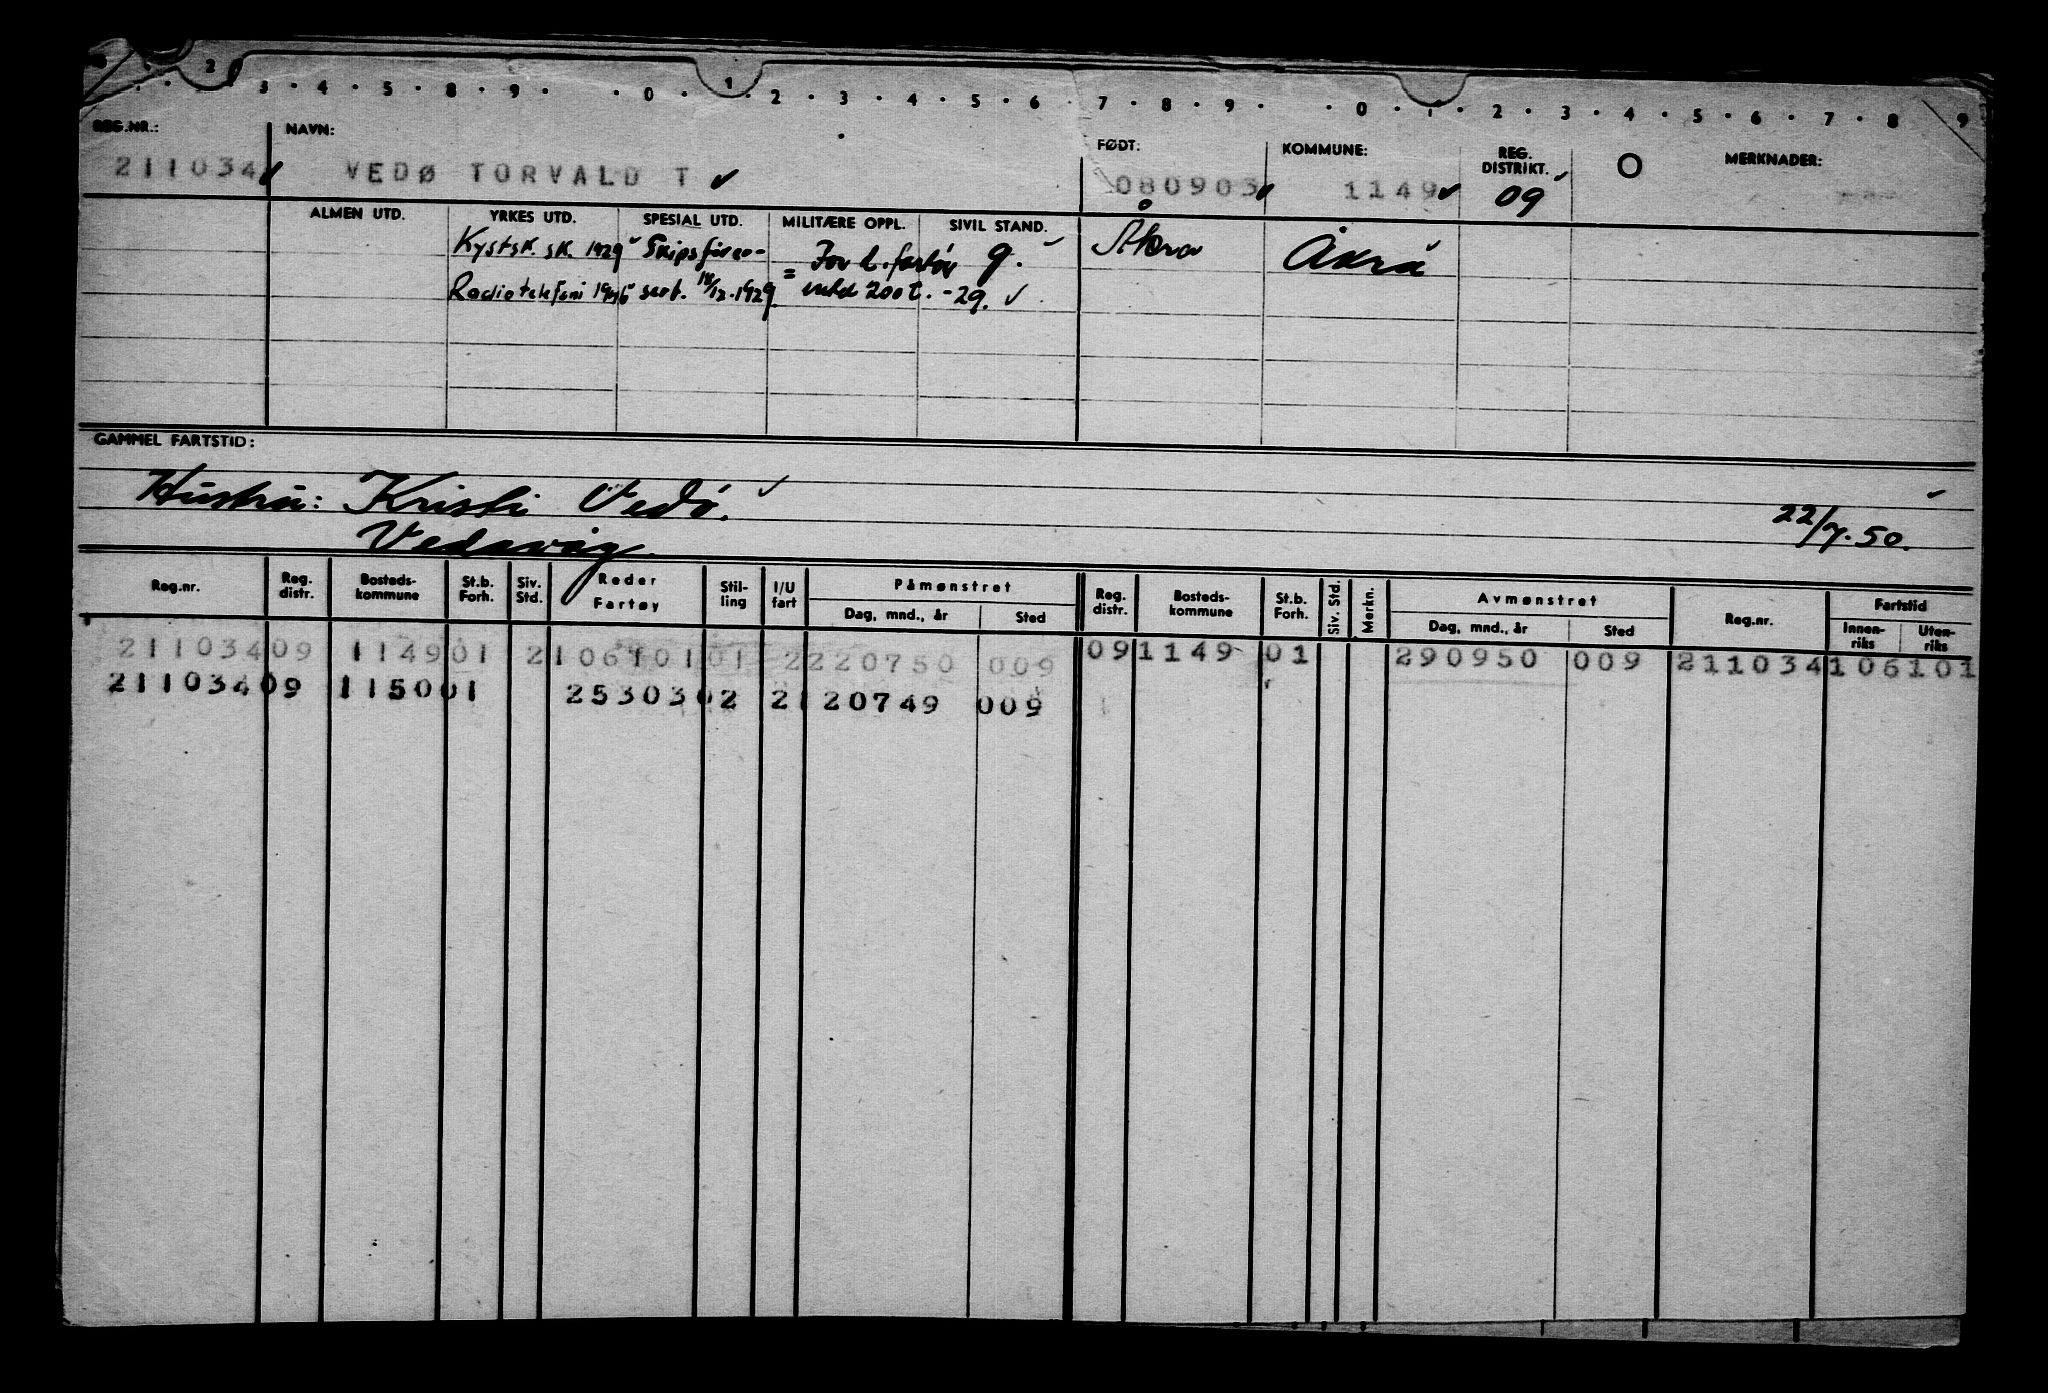 2
3 · 4 · 5 · 8 · 9 · · 0 · 1 · 2 · 3 · 4 · 5 · 6 · 7 · 8 · 9 · · 0 · 1 · 2 · 3 · 4 · 5 · 6 · 7 · 8 · 9
REG.NR.: NAVN: FØDT: KOMMUNE: REG. DISTRIKT. O MERKNADER:
211034 ✓ VEDØ TORVALD T ✓ 080903 ✓ 1149 ✓ 09
ALMEN UTD. YRKES UTD. SPESIAL UTD. MILITÆRE OPPL. SIVIL STAND.
Kystsk. sk. 1929 Skipsfører- For h. fartøy g. Åkra Åkra
Radiotelefoni 1946 sert. 18/12.1929. = inntil 200 t. -29. ✓
GAMMEL FARTSTID:
Hustru: Kristi Vedø. ✓
Vedavåg 22/7.50.
Reg.nr. Reg. distr. Bosteds- kommune St.b. Forh. Siv. Std. Reder Fartøy Stil- ling I/U fart Påmønstret Reg. distr. Bosteds- kommune St.b. Forh. Siv. Std. Merkn. Avmønstret Reg.nr. Fartstid
Dag, mnd., år Sted Dag, mnd., år Sted Innen- riks Uten- riks
211034 09 1149 01 2 106101 01 2 220750 009 09 1149 01 290950 009 211034 106101
211034 09 1150 01 253030 2 2 120749 009